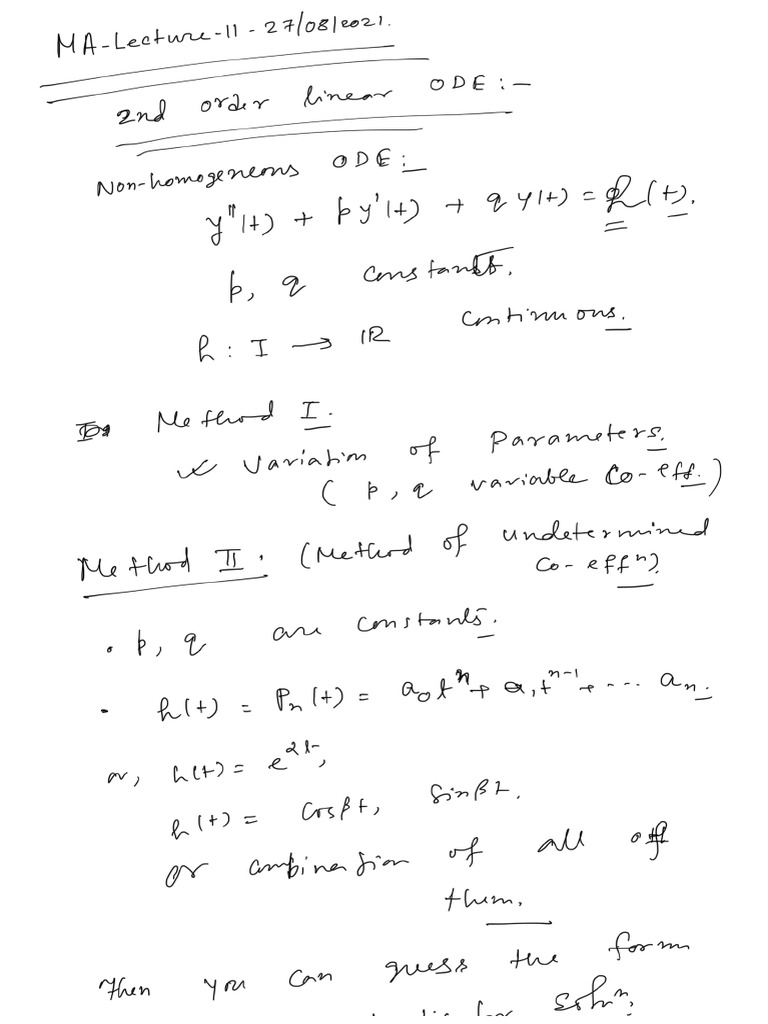 MA-Lecture-11-27/08/2021.
2nd order linear ODE :-
Non-homogeneous ODE :-
y''(t) + p y'(t) + q y(t) = h(t).
p, q constants.
h : I → IR continuous.
Method I.
Variation of Parameters.
( p, q variable co-eff. )
Method II. (Method of undetermined
co-effⁿ).
• p, q are constants.
• h(t) = Pₙ(t) = a₀tⁿ + a₁tⁿ⁻¹ + ... aₙ.
or, h(t) = e
h(t) = cosβt, sinβt.
or combination of all of
them.
Then you can guess the form
solⁿ.